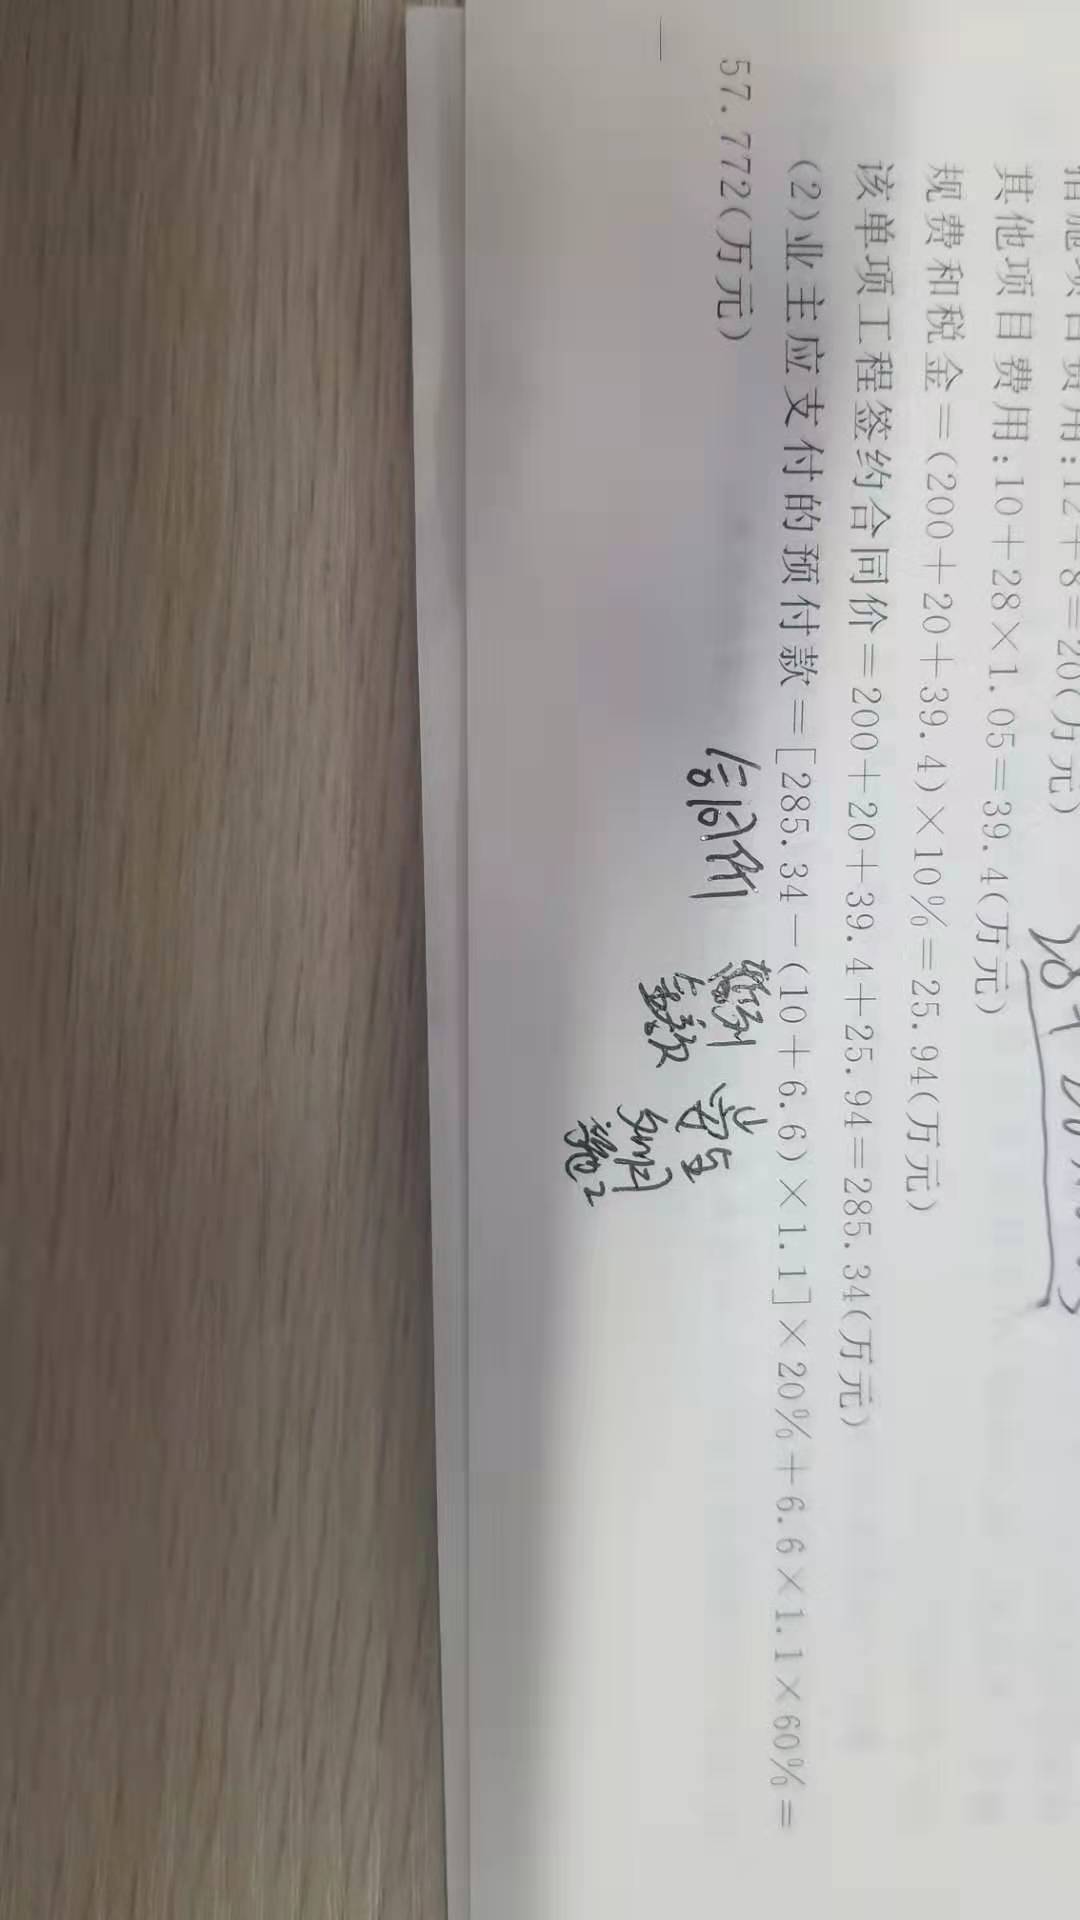 措施项目费用:12+8=20(万元)
其他项目费用:10+28×1.05=39.4(万元)
规费和税金=(200+20+39.4)×10%=25.94(万元)
该单项工程签约合同价=200+20+39.4+25.94=285.34(万元)
(2)业主应支付的预付款=[285.34-(10+6.6)×1.1]×20%+6.6×1.1×60%=
57.772(万元)
合同价
暂列
金额
安全
文明
施工